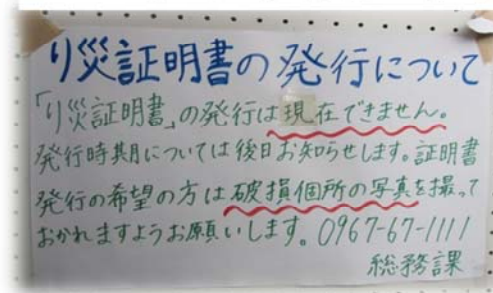 り災証明書の発行について
「り災証明書」の発行は現在できません。
発行時期については後日お知らせします。証明書
発行の希望の方は破損個所の写真を撮って
おかれますようお願いします。0967-67-1111
総務課